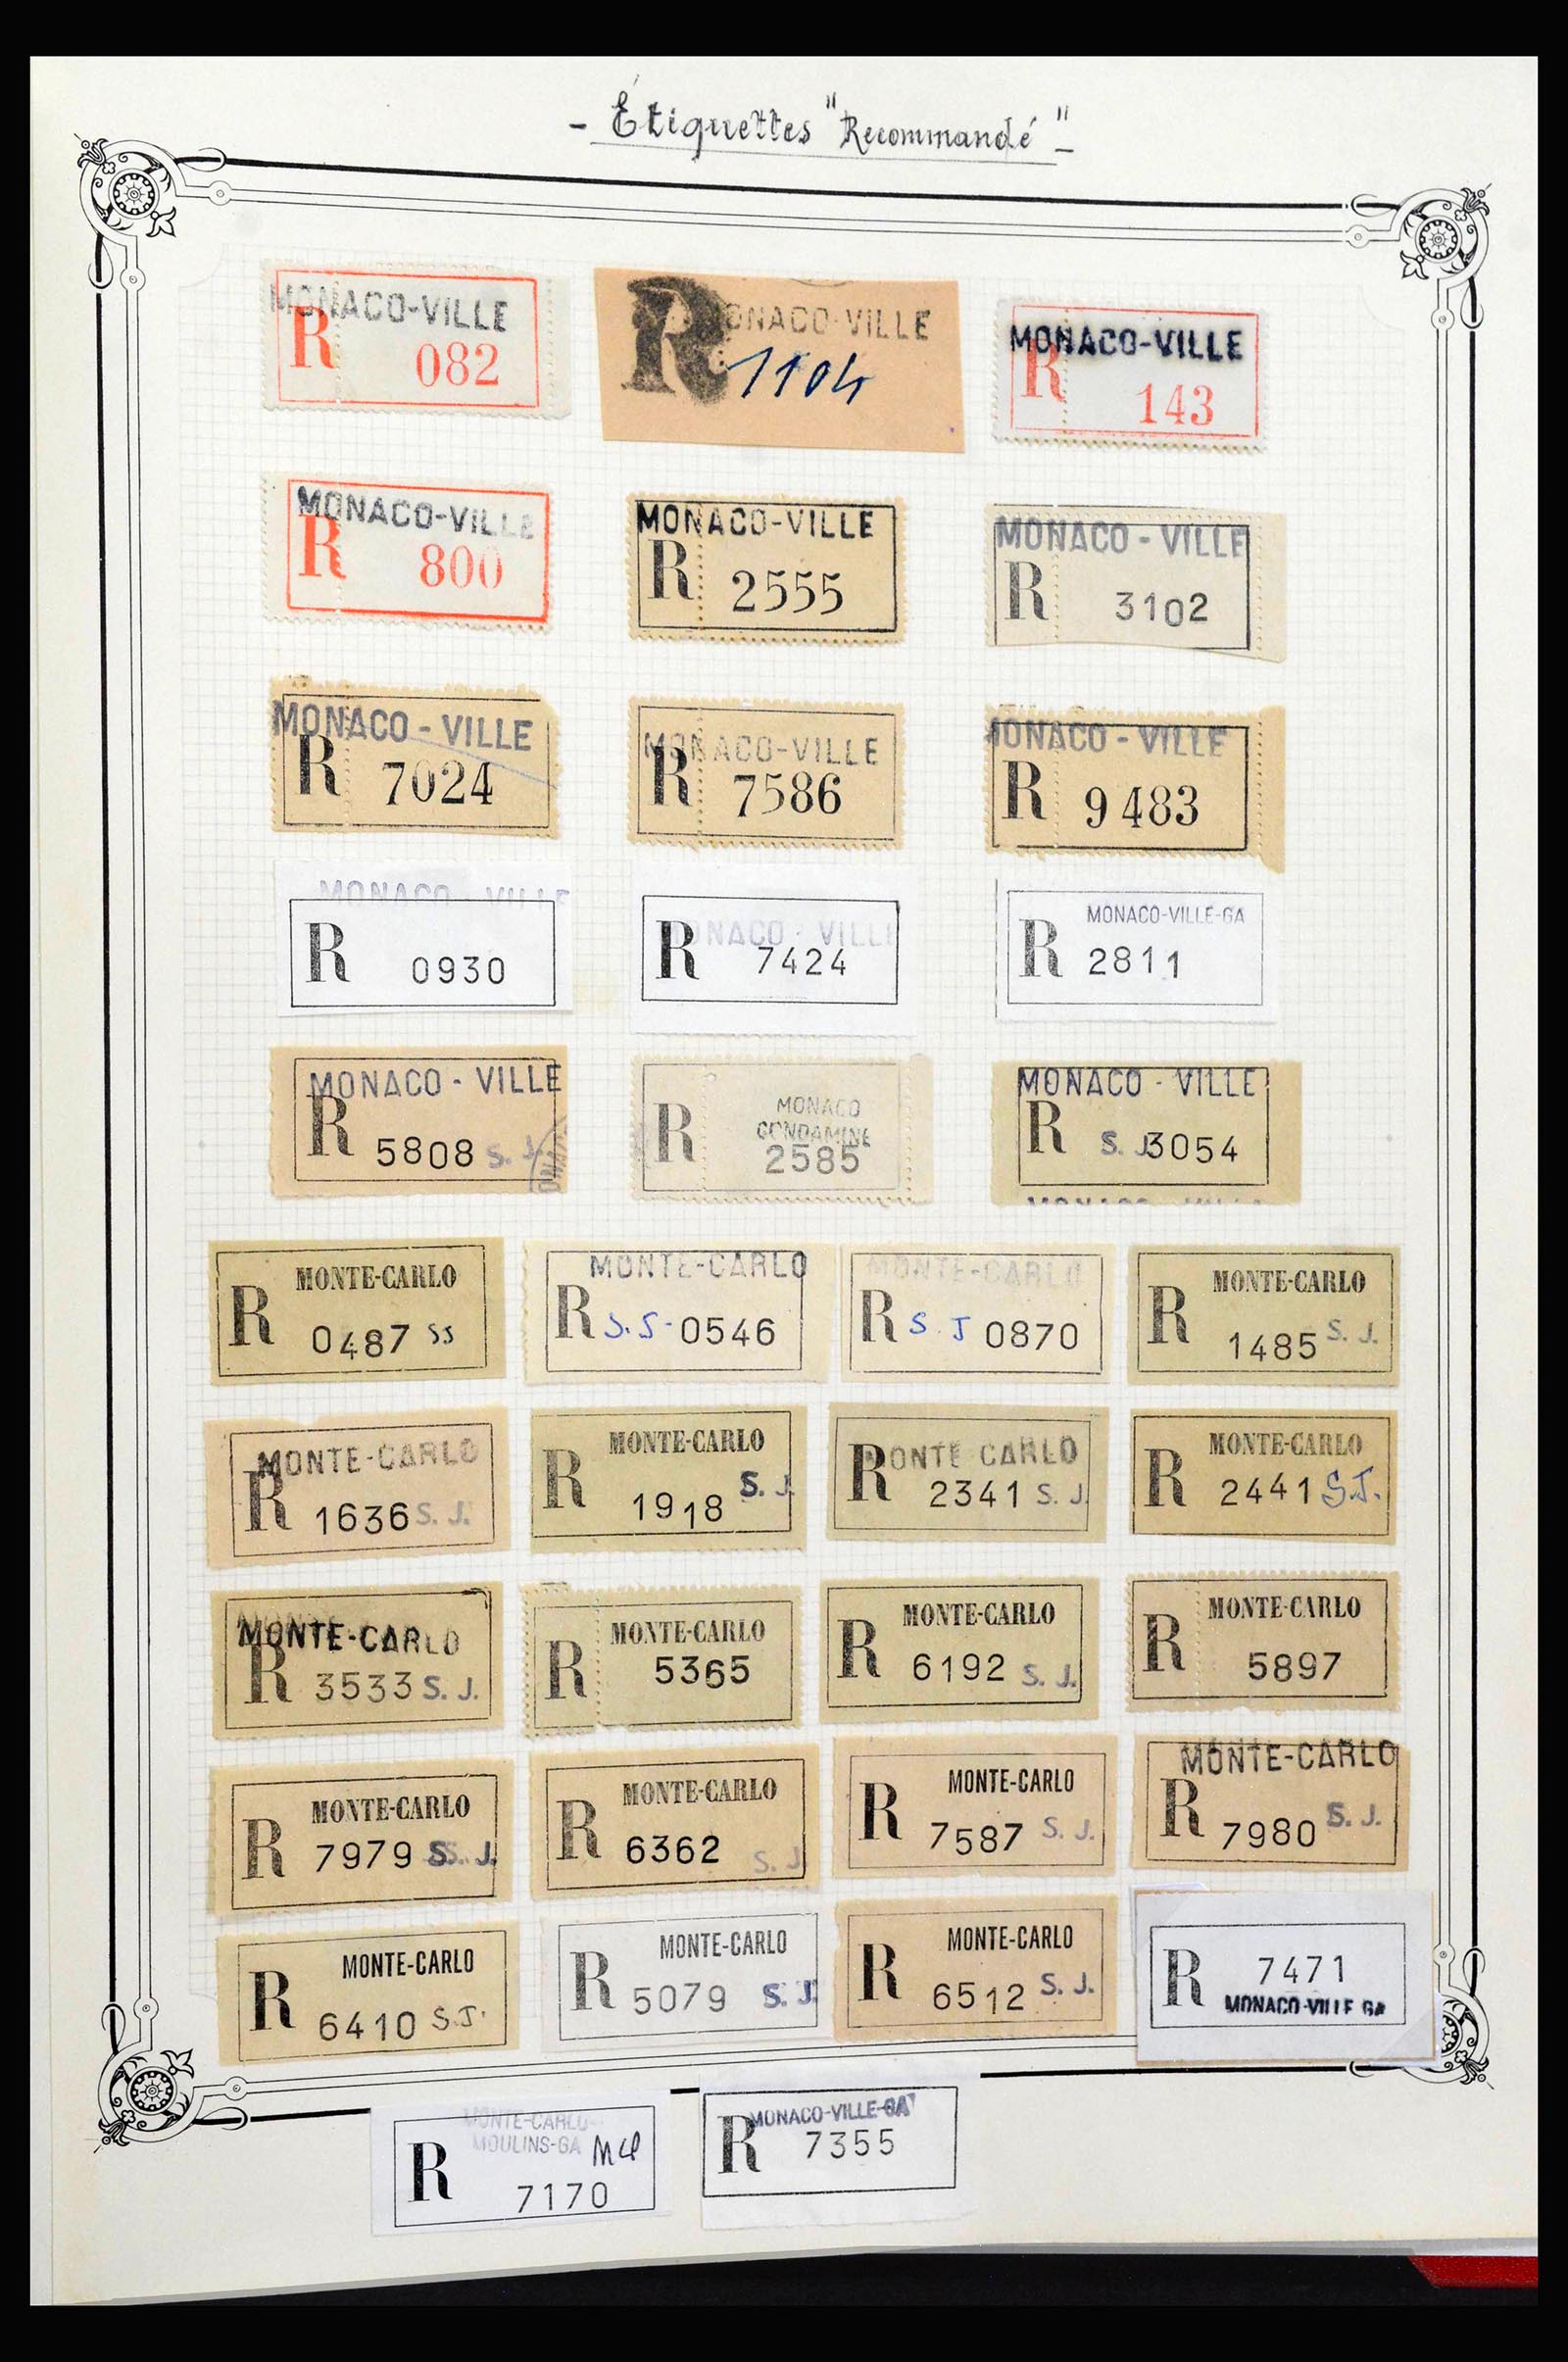 - Étiquettes "Recommandé" -
MONACO-VILLE
R 082
R MONACO-VILLE
1104
MONACO-VILLE
R 143
MONACO-VILLE
R 800
MONACO-VILLE
R 2555
MONACO - VILLE
R 3102
MONACO - VILLE
R 7024
MONACO-VILLE
R 7586
MONACO - VILLE
R 9483
MONACO - VILLE
R 0930
MONACO - VILLE
R 7424
MONACO-VILLE-GA
R 2811
MONACO - VILLE
R 5808 S. J.
MONACO
CONDAMINE
R 2585
MONACO - VILLE
R S. J 3054
MONACO - VILLE
MONTE-CARLO
R 0487 SS
MONTE-CARLO
R S.S- 0546
MONTE-CARLO
R S J 0870
MONTE-CARLO
R 1485 S. J.
MONTE-CARLO
R 1636 S. J.
MONTE-CARLO
R 1918 S. J.
MONTE CARLO
R 2341 S. J.
MONTE-CARLO
R 2441 S.J.
MONTE-CARLO
R 3533 S. J.
MONTE-CARLO
R 5365
MONTE-CARLO
R 6192 S. J.
MONTE-CARLO
R 5897
MONTE-CARLO
R 7979 S. J.
MONTE-CARLO
R 6362 S. J
MONTE-CARLO
R 7587 S. J.
MONTE-CARLO
R 7980 S. J.
MONTE-CARLO
R 6410 S.J.
MONTE-CARLO
R 5079 S. J.
MONTE-CARLO
R 6512 S. J.
R 7471
MONACO-VILLE GA
MONTE-CARLO-
MOULINS-GA
R 7170
MONACO-VILLE-GA
R 7355